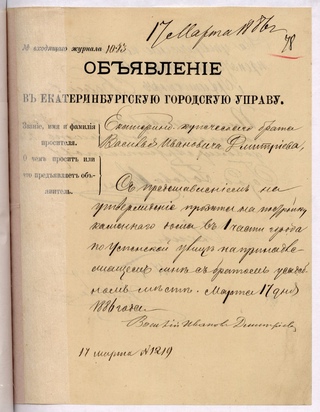 17 Марта 1886 г
78
№ входящаго журнала 1043
ОБЪЯВЛЕНІЕ
ВЪ ЕКАТЕРИНБУРГСКУЮ ГОРОДСКУЮ УПРАВУ.
Званіе, имя и фамилія
просителя.
О чемъ проситъ или
что предъявляетъ объ-
явитель.
купеческаго брата
Василья Ивановича Дмитріева,
на
утвержденіе проэкта на постройку
каменнаго дома въ 1 части города
по Успенской улицѣ на принадле-
съ братомъ усадеб-
номъ мѣстѣ. Марта 17 дня
1886 года.
Василій Ивановъ Дмитріевъ
17 марта №1219